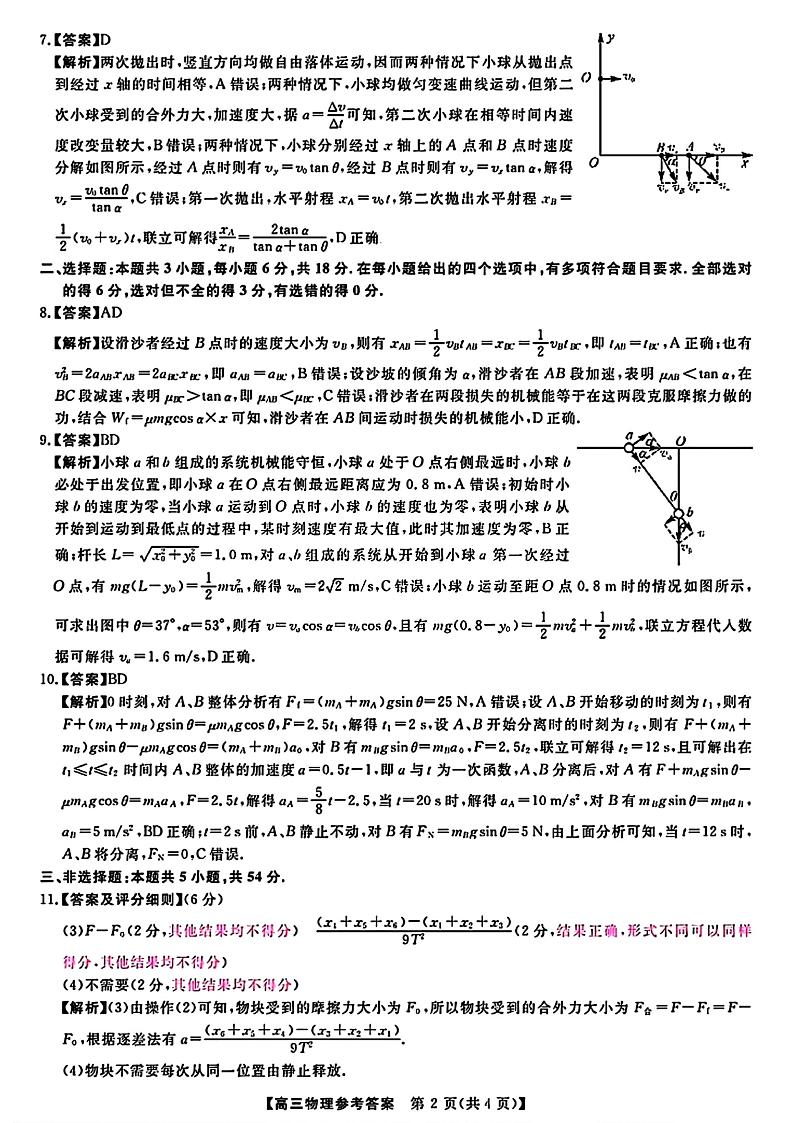 7.【答案】D
【解析】两次抛出时,竖直方向均做自由落体运动,因而两种情况下小球从抛出点
到经过 x 轴的时间相等,A 错误;两种情况下,小球均做匀变速曲线运动,但第二
次小球受到的合外力大,加速度大,据 a=Δv/Δt可知,第二次小球在相等时间内速
度改变量较大,B错误;两种情况下,小球分别经过 x 轴上的 A 点和 B 点时速度
分解如图所示,经过 A 点时则有 vy=v0tan θ,经过 B 点时则有 vy=vxtan α,解得
vx=v0tan θ/tan α,C 错误;第一次抛出,水平射程 xA=v0t,第二次抛出水平射程 xB=
1/2(v0+vx)t,联立可解得xA/xB=2tan α/(tan α+tan θ),D 正确.
y
O v0
O B A x
二、选择题:本题共 3 小题,每小题 6 分,共 18 分.在每小题给出的四个选项中,有多项符合题目要求.全部选对
的得 6 分,选对但不全的得 3 分,有选错的得 0 分.
8.【答案】AD
【解析】设滑沙者经过 B 点时的速度大小为 vB,则有 xAB=1/2vBtAB=xBC=1/2vBtBC,即 tAB=tBC,A 正确;也有
vB²=2aABxAB=2aBCxBC,即 aAB=aBC,B 错误;设沙坡的倾角为 α,滑沙者在 AB 段加速,表明 μAB<tan α,在
BC 段减速,表明 μBC>tan α,即 μAB<μBC,C 错误;滑沙者在两段损失的机械能等于在这两段克服摩擦力做的
功,结合 Wf=μmgcos α×x 可知,滑沙者在 AB 间运动时损失的机械能小,D 正确.
9.【答案】BD
【解析】小球 a 和 b 组成的系统机械能守恒,小球 a 处于 O 点右侧最远时,小球 b
必处于出发位置,即小球 a 在 O 点右侧最远距离应为 0.8 m,A 错误;初始时小
球 b 的速度为零,当小球 a 运动到 O 点时,小球 b 的速度也为零,表明小球 b 从
开始到运动到最低点的过程中,某时刻速度有最大值,此时其加速度为零,B 正
确;杆长 L=√(x0²+y0²)=1.0 m,对 a、b 组成的系统从开始到小球 a 第一次经过
O 点,有 mg(L-y0)=1/2mvm²,解得 vm=2√2 m/s,C 错误;小球 b 运动至距 O 点 0.8 m 时的情况如图所示,
可求出图中 θ=37°,α=53°,则有 v=vacos α=vbcos θ,且有 mg(0.8-y0)=1/2mva²+1/2mvb²,联立方程代入数
据可解得 va=1.6 m/s,D 正确.
a α va O
v
θ b
v
vb
10.【答案】BD
【解析】0 时刻,对 A、B 整体分析有 Ff=(mA+mA)gsin θ=25 N,A 错误;设 A、B 开始移动的时刻为 t1,则有
F+(mA+mB)gsin θ=μmAgcos θ,F=2.5t1,解得 t1=2 s,设 A、B 开始分离时的时刻为 t2,则有 F+(mA+
mB)gsin θ-μmAgcos θ=(mA+mB)a0,对 B 有 mBgsin θ=mBa0,F=2.5t2,联立可解得 t2=12 s,且可解出在
t1≤t≤t2 时间内 A、B 整体的加速度 a=0.5t-1,即 a 与 t 为一次函数,A、B 分离后,对 A 有 F+mAgsin θ-
μmAgcos θ=mAaA,F=2.5t,解得 aA=5/8t-2.5,当 t=20 s 时,解得 aA=10 m/s²,对 B 有 mBgsin θ=mBaB,
aB=5 m/s²,BD 正确;t=2 s 前,A、B 静止不动,对 B 有 FN=mBgsin θ=5 N,由上面分析可知,当 t=12 s 时,
A、B 将分离,FN=0,C 错误.
三、非选择题:本题共 5 小题,共 54 分.
11.【答案及评分细则】(6 分)
(3)F-F0(2 分,其他结果均不得分) ((x4+x5+x6)-(x1+x2+x3))/9T²(2 分,结果正确,形式不同可以同样
得分,其他结果均不得分)
(4)不需要(2 分,其他结果均不得分)
【解析】(3)由操作(2)可知,物块受到的摩擦力大小为 F0,所以物块受到的合外力大小为 F合=F-Ff=F-
F0,根据逐差法有 a=((x6+x5+x4)-(x3+x2+x1))/9T².
(4)物块不需要每次从同一位置由静止释放.
【高三物理参考答案 第 2 页(共 4 页)】